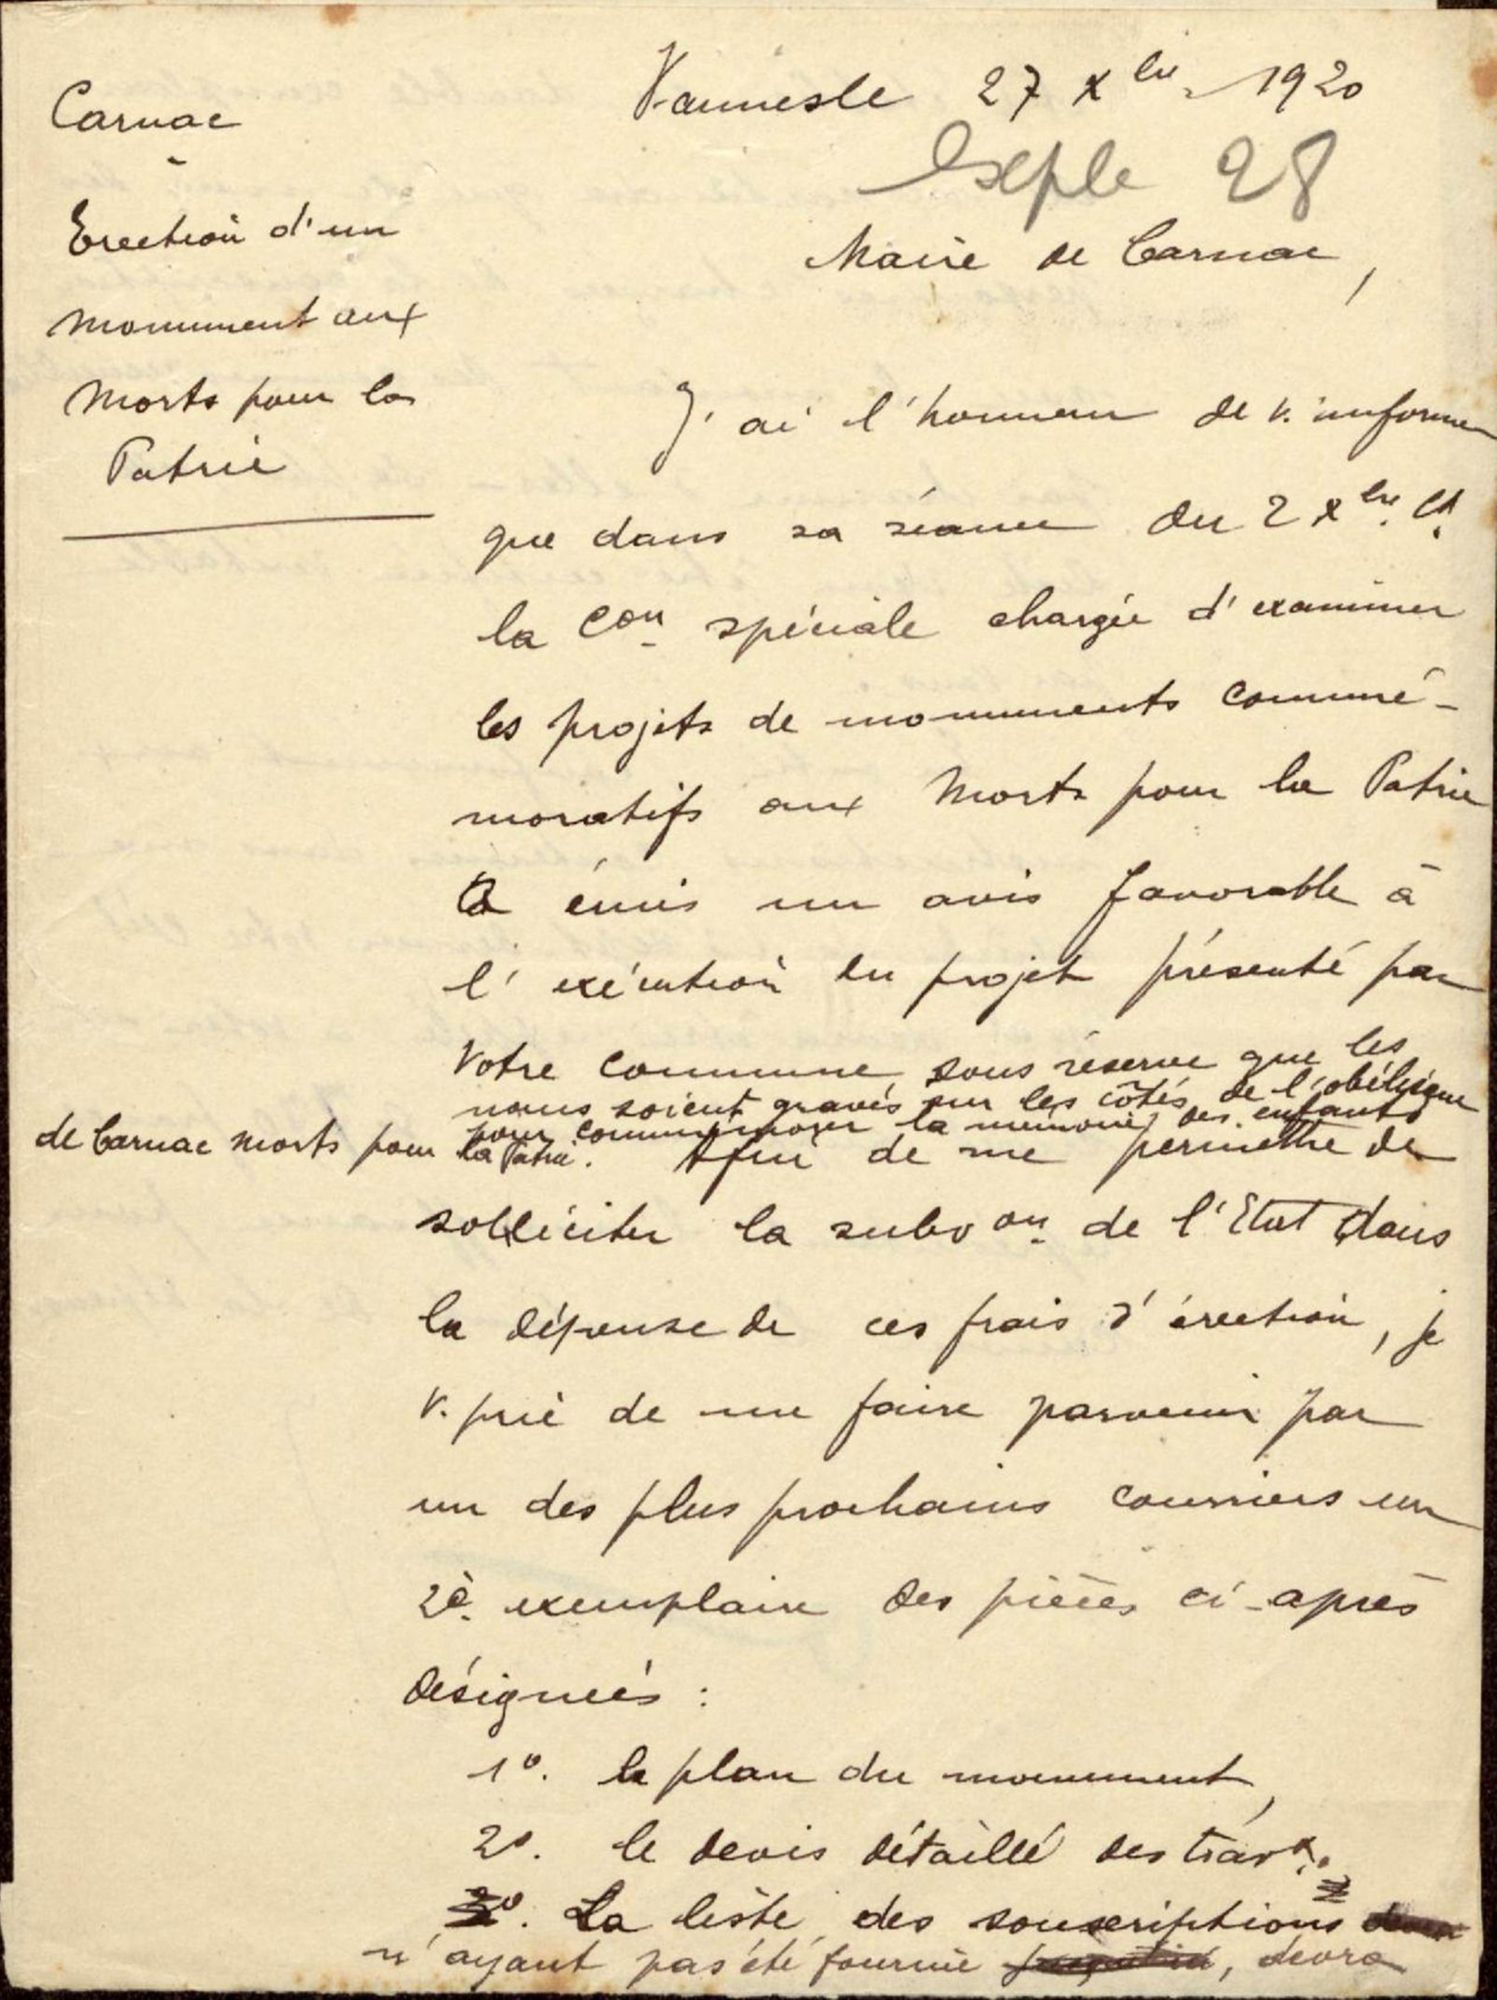 Carnac
-
Erection d'un
monument aux
Morts pour la
Patrie
Vannes le 27 Xbre 1920
Exple 28
Maire de Carnac,
J'ai l'honneur de v. informer
que dans sa séance du 2 Xbre. Ct.
la Con spéciale chargée d'examiner
les projets de monuments commé-
moratifs aux Morts pour la Patrie
a émis un avis favorable à
l'exécution du projet présenté par
votre commune, sous réserve que les
noms soient gravés sur les côtés de l'obélisque
pour commémorer la mémoire des enfants
de Carnac morts pour la Patrie. Afin de me permettre de
solliciter la subvon de l'Etat dans
la dépense de ces frais d'érection, je
v. prie de me faire parvenir par
un des plus prochains courriers un
2è exemplaire des pièces ci-après
désignées :
1°. le plan du monument,
2°. le devis détaillé des travx.
La liste des souscriptions
n'ayant pas été fournie, devra